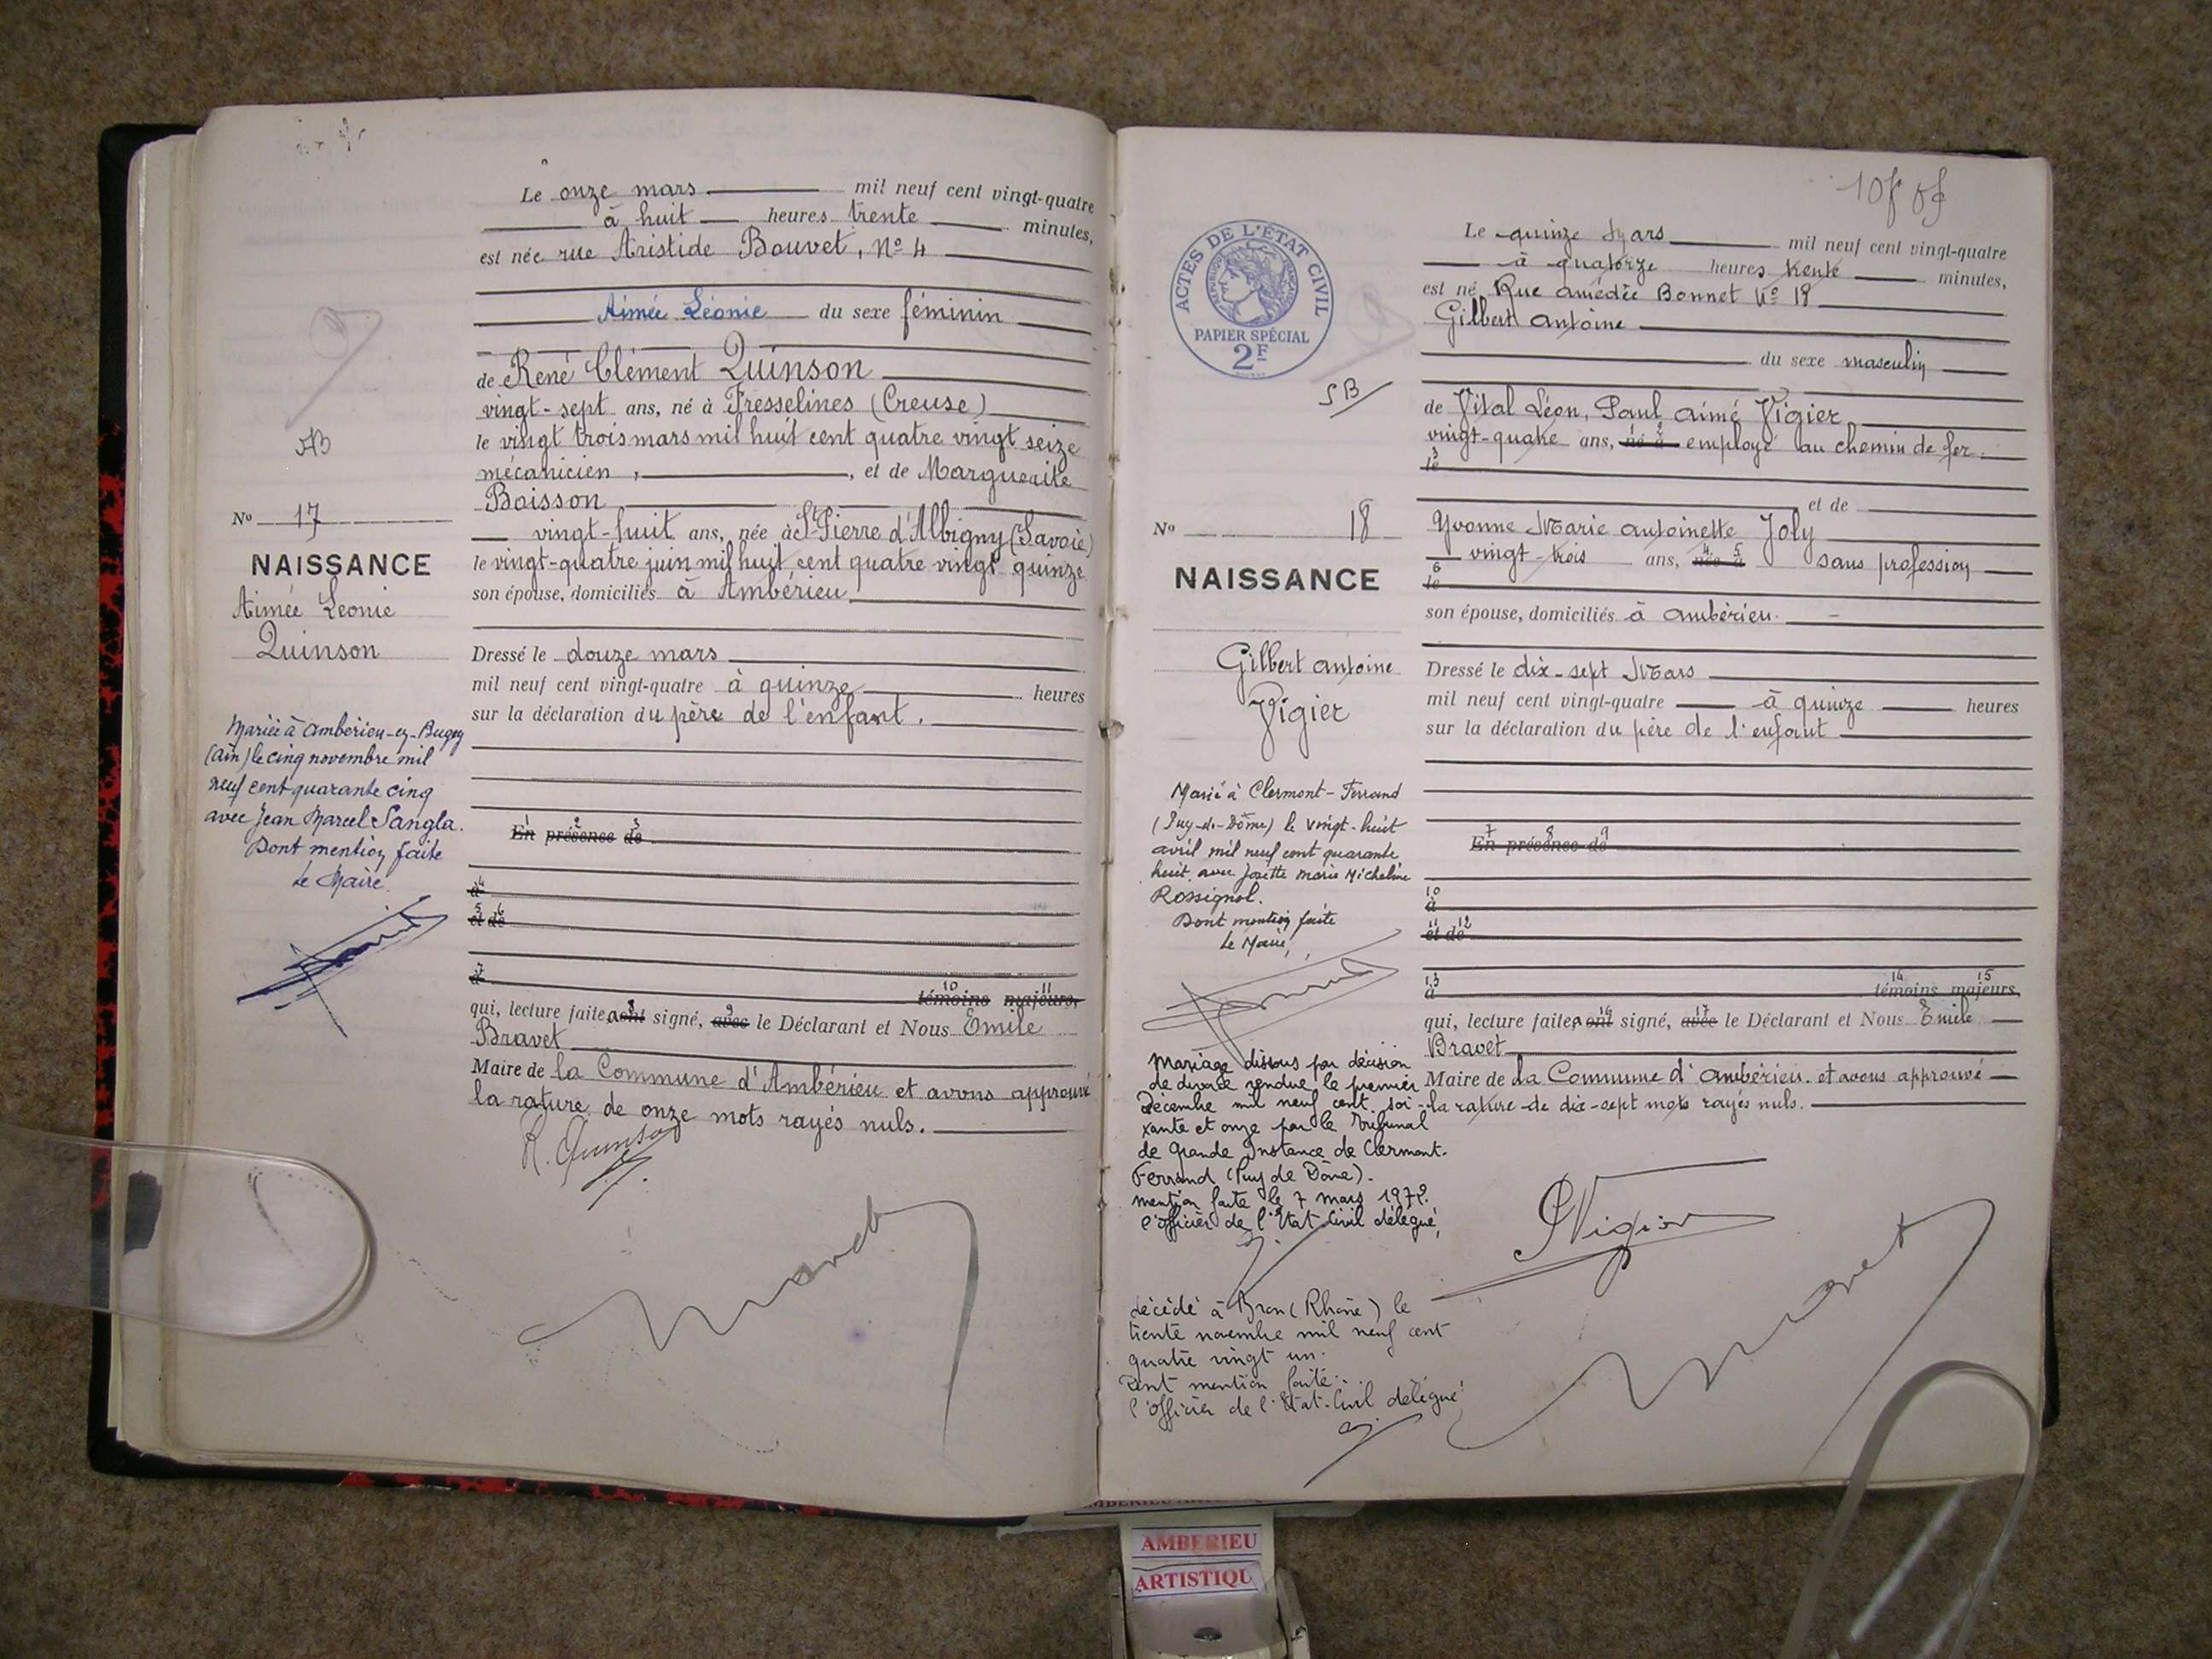 Le onze mars mil neuf cent vingt-quatre
à huit heures trente minutes,
est née rue Aristide Bouvet, No 4
Aimée Léonie du sexe féminin
de René Clément Quinson
vingt-sept ans, né à Fresselines (Creuse)
le vingt trois mars mil huit cent quatre vingt seize
mécanicien, et de Marguerite
Boisson
vingt-huit ans, née à St Pierre d'Albigny (Savoie)
le vingt-quatre juin mil huit cent quatre vingt quinze
son épouse, domiciliés à Ambérieu
Dressé le douze mars
mil neuf cent vingt-quatre à quinze heures
sur la déclaration du père de l'enfant.
1 2 3
En présence de
4
à
5 6
et de
7
à
10 11
témoins majeurs,
8 9
qui, lecture faite, a ont signé, avec le Déclarant et Nous Emile
Bravet
Maire de la Commune d'Ambérieu et avons approuvé
la rature de onze mots rayés nuls.
R. Quinson
AB
No 17
NAISSANCE
Aimée Léonie
Quinson
Mariée à Ambérieu-en-Bugey
(Ain) le cinq novembre mil
neuf cent quarante cinq
avec Jean Marcel Sangla.
Dont mention faite
Le Maire.
ACTES DE L'ÉTAT CIVIL
RÉPUBLIQUE FRANÇAISE
PAPIER SPÉCIAL
2F
SB
Le quinze Mars mil neuf cent vingt-quatre
à quatorze heures trente minutes,
est né Rue Amédée Bonnet No 18
Gilbert Antoine
du sexe masculin
de Vital Léon, Paul Aimé Vigier
1 2
vingt-quatre ans, né à employé au chemin de fer.
3
le
et de
Yvonne Marie Antoinette Joly
4 5
vingt-trois ans, née à sans profession
6
le
son épouse, domiciliés à Ambérieu.
Dressé le dix-sept Mars
mil neuf cent vingt-quatre à quinze heures
sur la déclaration du père de l'enfant
7 8 9
En présence de
10
à
11 12
et de
13 14 15
à témoins majeurs,
16 17
qui, lecture faite, a ont signé, avec le Déclarant et Nous Emile
Bravet
Maire de la Commune d'Ambérieu. et avons approuvé
la rature de dix-sept mots rayés nuls.
Vigier
No 18
NAISSANCE
Gilbert Antoine
Vigier
Marié à Clermont-Ferrand
(Puy-de-Dôme) le vingt-huit
avril mil neuf cent quarante
huit, avec Josette Marie Micheline
Rossignol.
Dont mention faite
Le Maire,
Mariage dissous par décision
de divorce rendue le premier
Décembre mil neuf cent soi-
xante et onze par le Tribunal
de Grande Instance de Clermont-
Ferrand (Puy de Dôme).
mention faite le 7 mars 1972.
l'officier de l'Etat Civil délégué,
décédé à Bron (Rhône) le
trente novembre mil neuf cent
quatre vingt un.
Dont mention faite.
l'officier de l'Etat-Civil délégué
AMBERIEU
ARTISTIQU